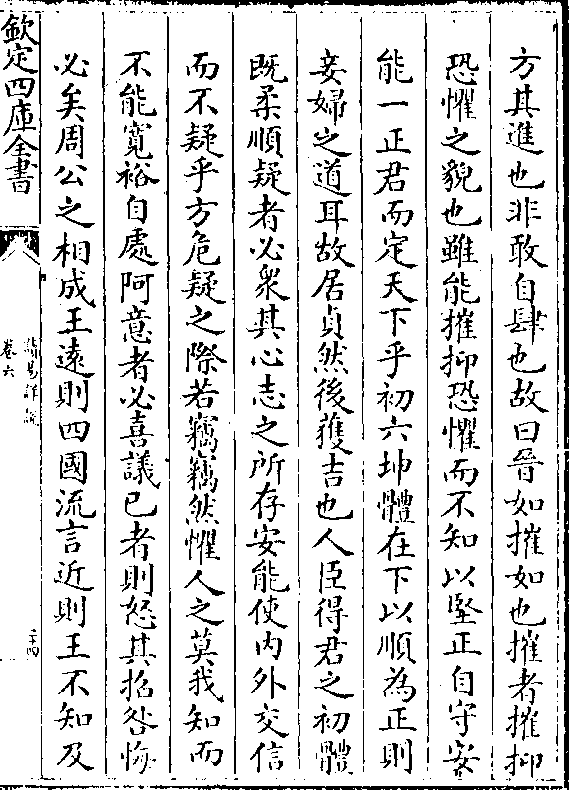 方其進也非敢自肆也故曰晉如摧如也摧者摧抑
恐懼之貌也雖能摧抑恐懼而不知以堅正自守安
能一正君而定天下乎初六坤體在下以順為正則
妾婦之道耳故居貞然後獲吉也人臣得君之初體
既柔順疑者必衆其心志之所存安能使内外交信
而不疑乎方危疑之際若竊竊然懼人之莫我知而
不能寛裕自處阿意者必喜議已者則怒其招咎悔
必矣周公之相成王遠則四國流言近則王不知及
欽定四庫全書
讀易詳說
卷六
二十四